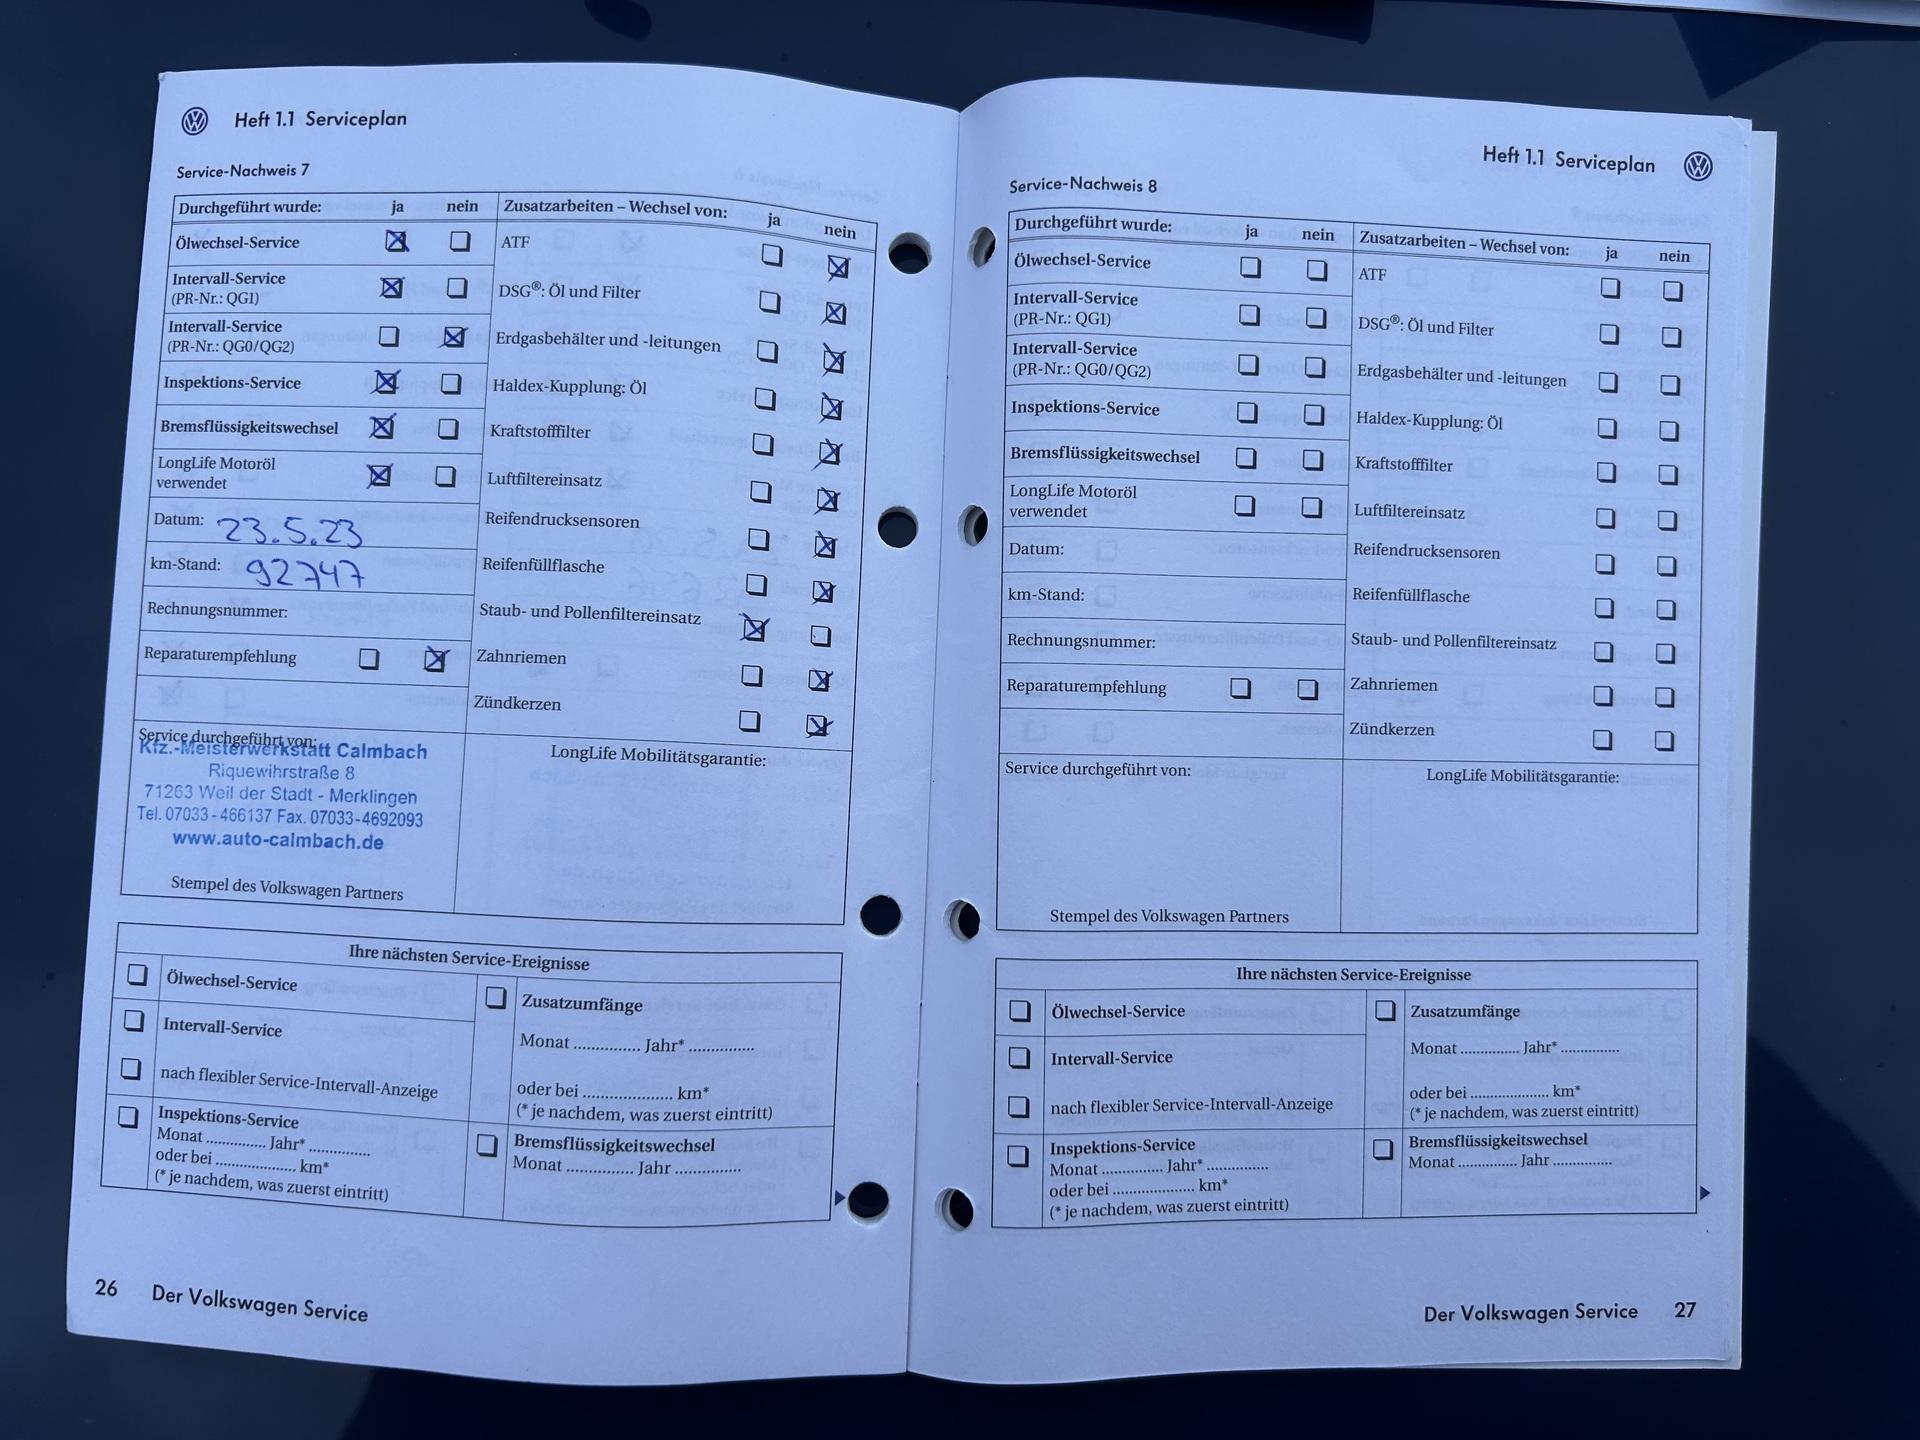 Heft 1.1 Serviceplan
Service-Nachweis 7
Durchgeführt wurde: ja nein
Ölwechsel-Service
Intervall-Service
(PR-Nr.: QG1)
Intervall-Service
(PR-Nr.: QG0/QG2)
Inspektions-Service
Bremsflüssigkeitswechsel
LongLife Motoröl
verwendet
Datum: 23.5.23
km-Stand: 92747
Rechnungsnummer:
Reparaturempfehlung
Zusatzarbeiten – Wechsel von: ja nein
ATF
DSG®: Öl und Filter
Erdgasbehälter und -leitungen
Haldex-Kupplung: Öl
Kraftstofffilter
Luftfiltereinsatz
Reifendrucksensoren
Reifenfüllflasche
Staub- und Pollenfiltereinsatz
Zahnriemen
Zündkerzen
Service durchgeführt von:
Kfz.-Meisterwerkstatt Calmbach
Riquewihrstraße 8
71263 Weil der Stadt - Merklingen
Tel. 07033-466137 Fax. 07033-4692093
www.auto-calmbach.de
Stempel des Volkswagen Partners
LongLife Mobilitätsgarantie:
Ihre nächsten Service-Ereignisse
Ölwechsel-Service
Intervall-Service
nach flexibler Service-Intervall-Anzeige
Inspektions-Service
Monat .............. Jahr* ..............
oder bei .................... km*
(* je nachdem, was zuerst eintritt)
Zusatzumfänge
Monat .............. Jahr* ..............
oder bei .................... km*
(* je nachdem, was zuerst eintritt)
Bremsflüssigkeitswechsel
Monat .............. Jahr ..............
26 Der Volkswagen Service
Heft 1.1 Serviceplan
Service-Nachweis 8
Durchgeführt wurde: ja nein
Ölwechsel-Service
Intervall-Service
(PR-Nr.: QG1)
Intervall-Service
(PR-Nr.: QG0/QG2)
Inspektions-Service
Bremsflüssigkeitswechsel
LongLife Motoröl
verwendet
Datum:
km-Stand:
Rechnungsnummer:
Reparaturempfehlung
Zusatzarbeiten – Wechsel von: ja nein
ATF
DSG®: Öl und Filter
Erdgasbehälter und -leitungen
Haldex-Kupplung: Öl
Kraftstofffilter
Luftfiltereinsatz
Reifendrucksensoren
Reifenfüllflasche
Staub- und Pollenfiltereinsatz
Zahnriemen
Zündkerzen
Service durchgeführt von:
Stempel des Volkswagen Partners
LongLife Mobilitätsgarantie:
Ihre nächsten Service-Ereignisse
Ölwechsel-Service
Intervall-Service
nach flexibler Service-Intervall-Anzeige
Inspektions-Service
Monat .............. Jahr* ..............
oder bei .................... km*
(* je nachdem, was zuerst eintritt)
Zusatzumfänge
Monat .............. Jahr* ..............
oder bei .................... km*
(* je nachdem, was zuerst eintritt)
Bremsflüssigkeitswechsel
Monat .............. Jahr ..............
Der Volkswagen Service 27